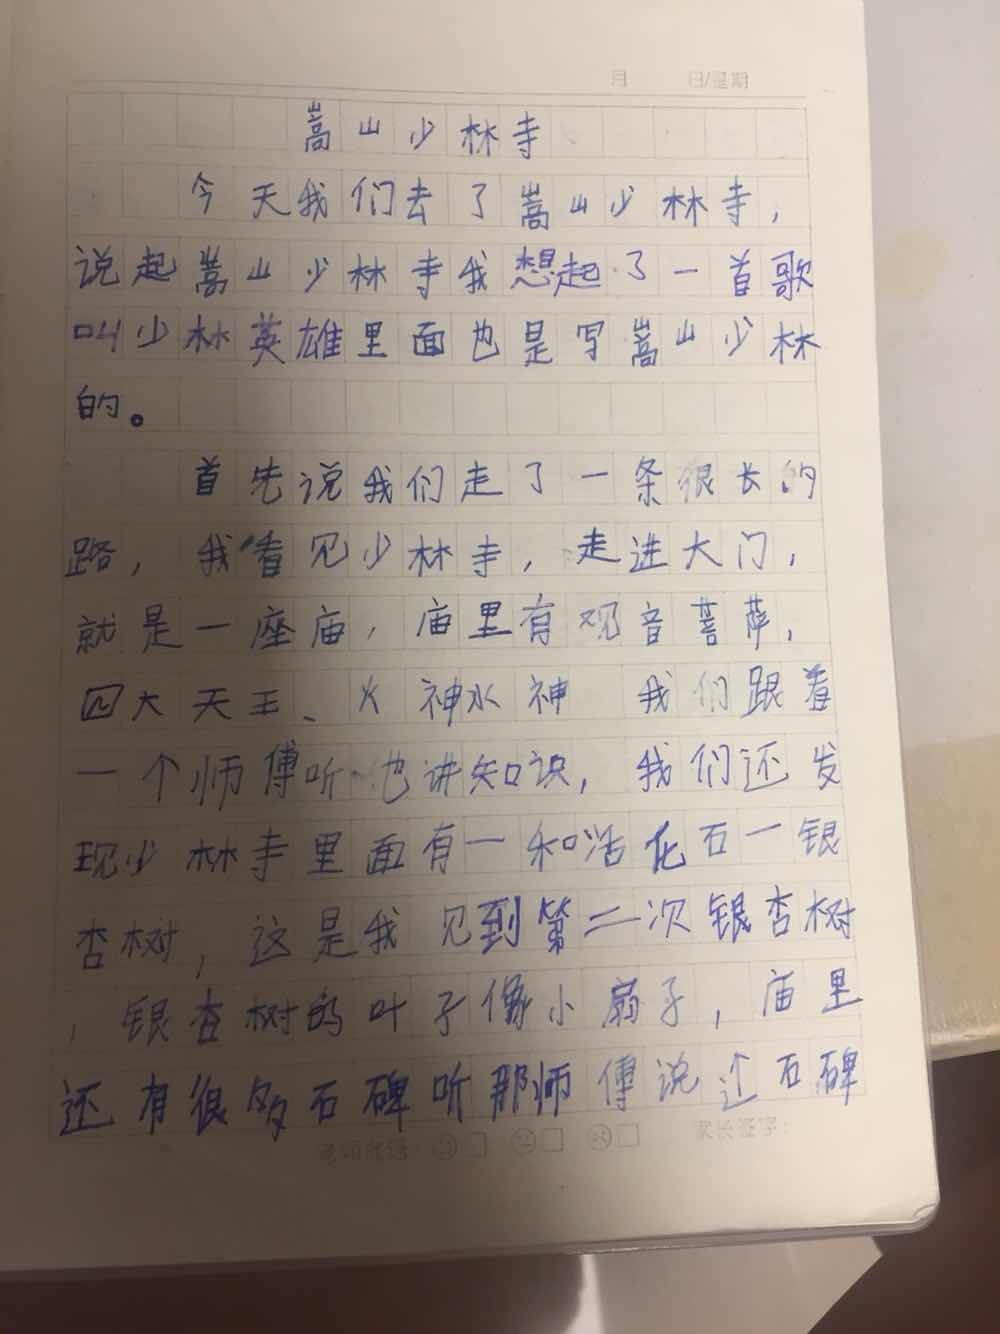 月 日/星期
嵩山少林寺
今天我们去了嵩山少林寺,
说起嵩山少林寺我想起了一首歌
叫少林英雄里面也是写嵩山少林
的。
首先说我们走了一条很长的
路,我看见少林寺,走进大门,
就是一座庙,庙里有观音菩萨,
四大天王、火神水神 我们跟着
一个师傅听他讲知识,我们还发
现少林寺里面有一种活化石一银
杏树,这是我见到第二次银杏树
,银杏树的叶子像小扇子,庙里
还有很多石碑听那师傅说这石碑
老师批语: 家长签字: